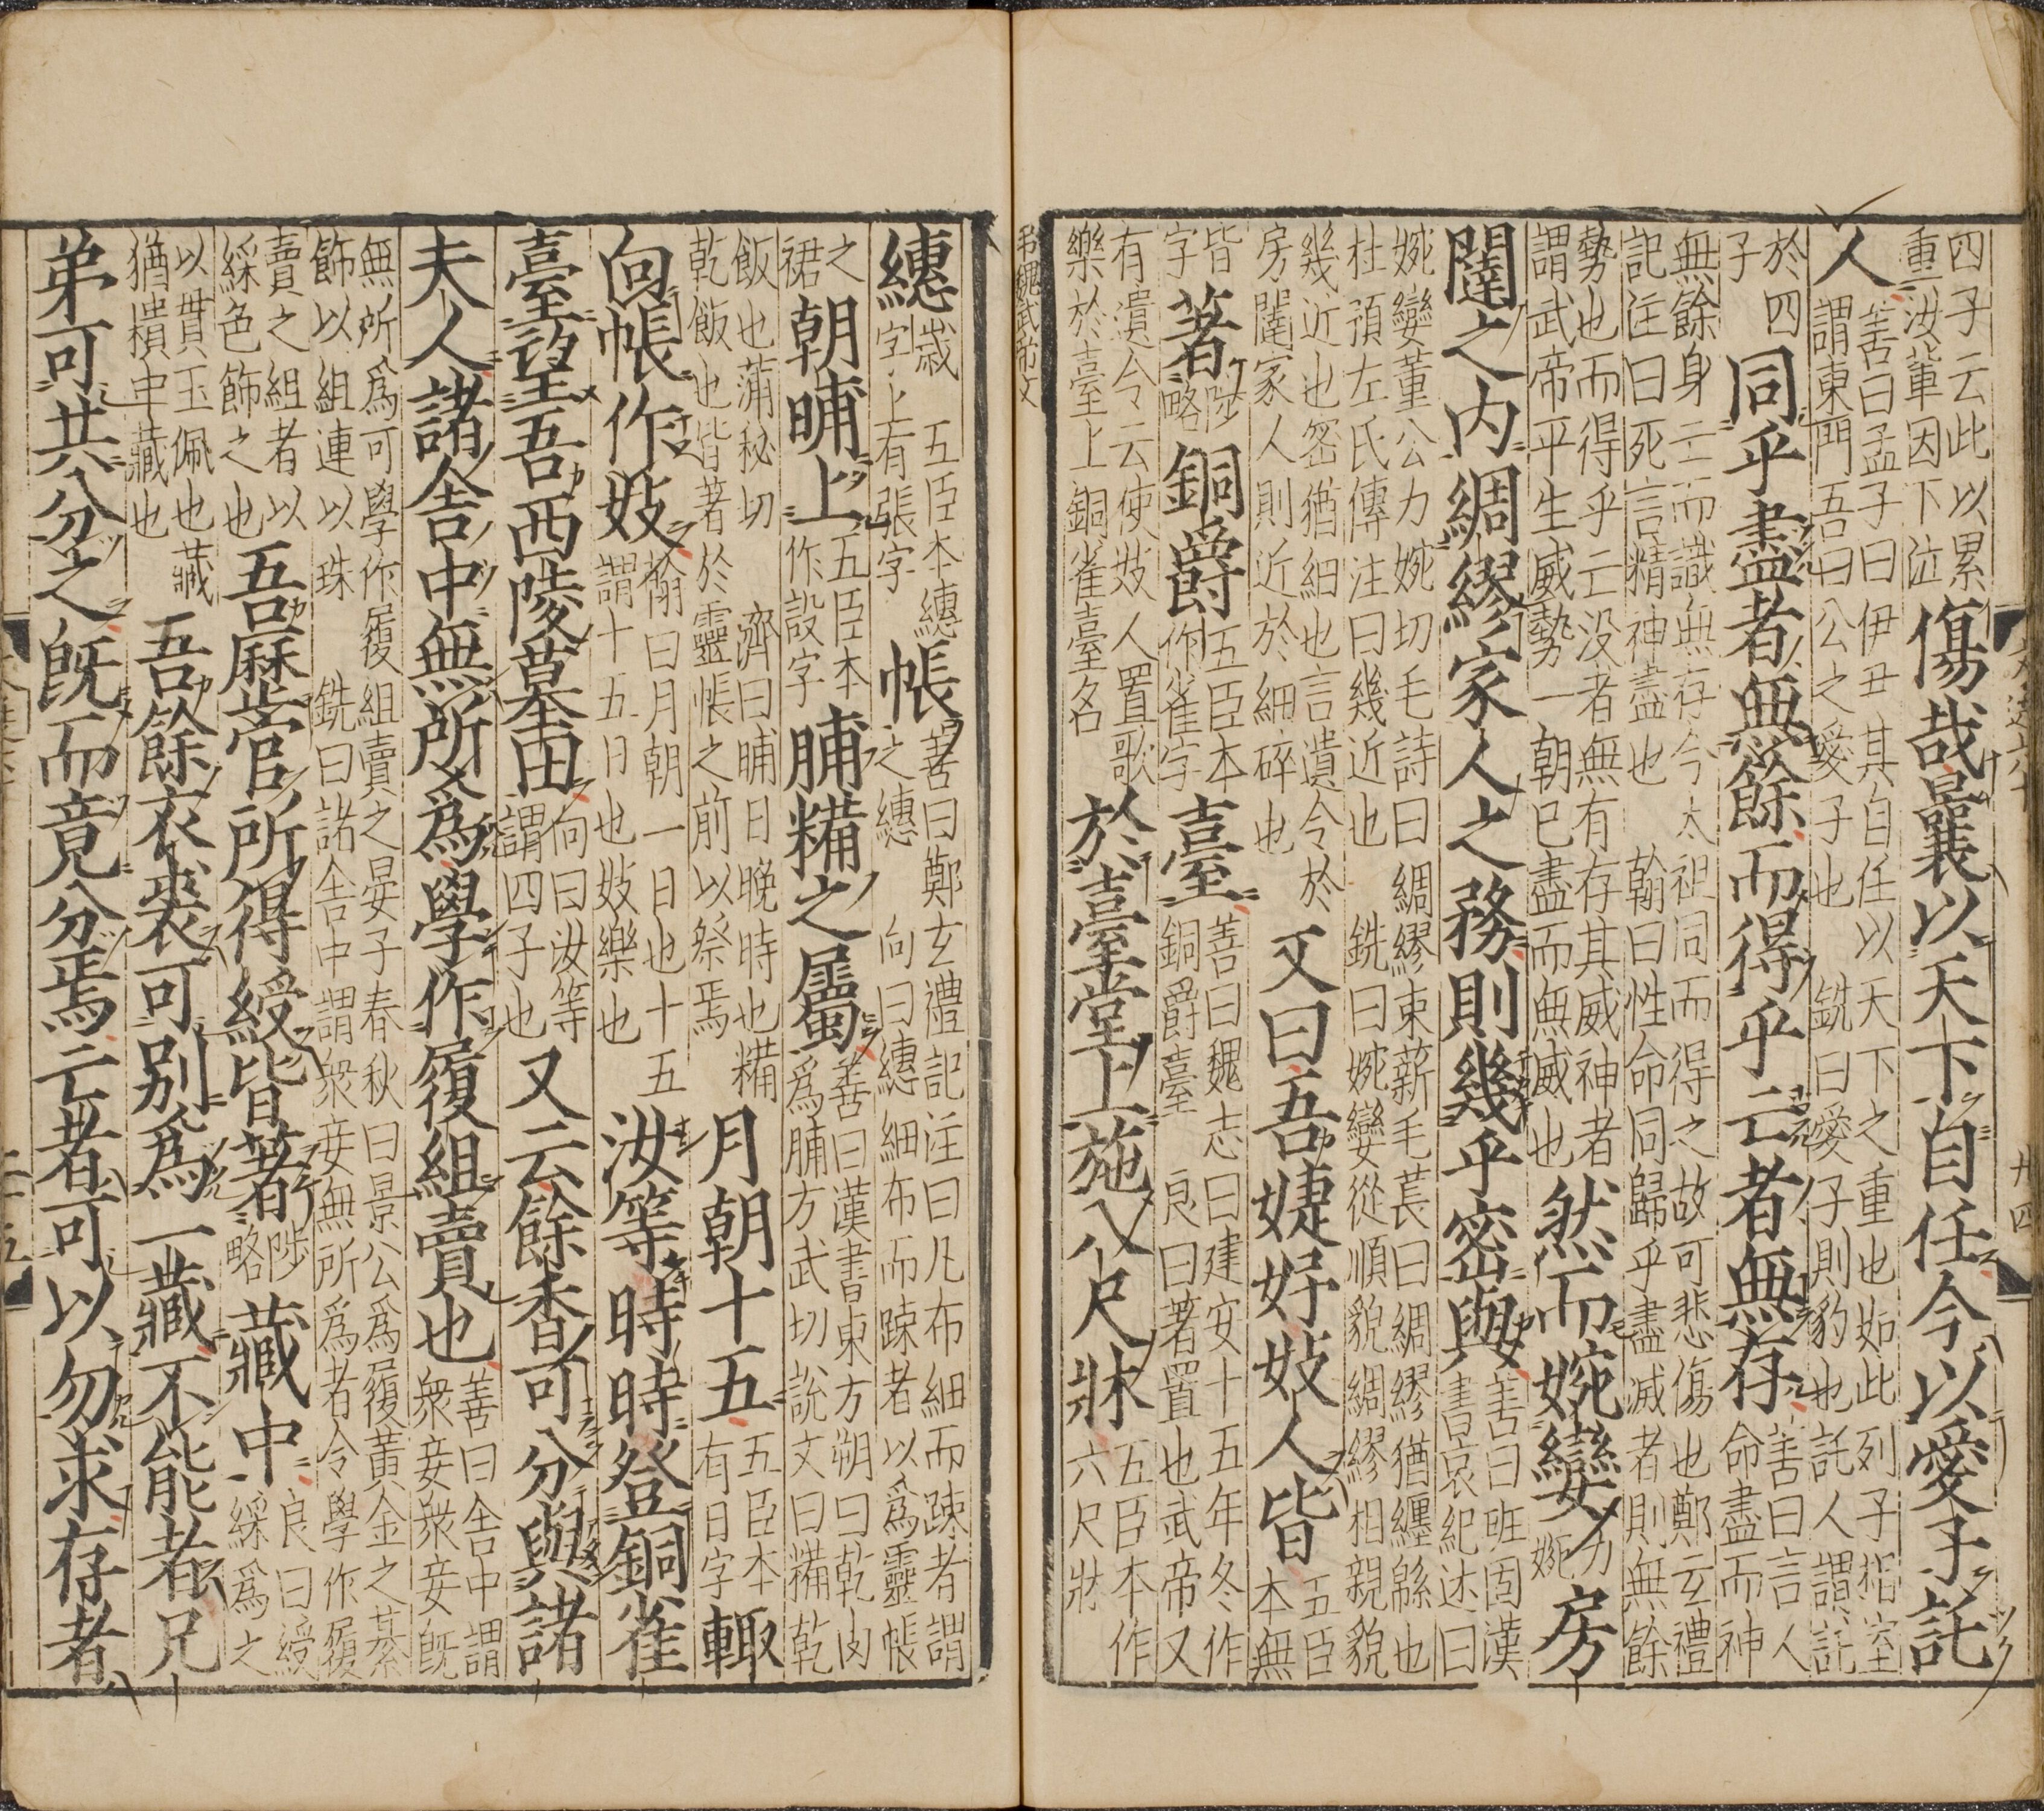 四子云此以累重汝軰因下泣傷哉曩以天下自任今以愛子託
人善曰孟子曰伊尹其自任以天下之重也如此列子指室謂東門吾曰公之愛子也　銑曰愛子則豹也託人謂託
於四子同乎盡者無餘而得乎亡者無存善曰言人命盡而神
無餘身亡而識無存今太祖同而得之故可悲傷也鄭玄禮記注曰死言精神盡也　翰曰性命同歸乎盡滅者則無餘
勢也而得乎亡没者無有存其威神者謂武帝平生威勢一朝已盡而無威也然而婉孌力婉房
闥之内綢繆家人之務則幾乎密與善曰班固漢書哀紀述曰
婉孌董公力婉切毛詩曰綢繆束薪毛萇曰綢繆猶纏緜也杜預左氏傳注曰幾近也　銑曰婉孌從順貌綢繆相親貌
幾近也密猶細也言遺令於房闥家人則近於細碎也又曰吾婕妤妓人皆五臣本無
皆字著陟略銅爵五臣本作雀字臺善曰魏志曰建安十五年冬作銅爵臺　良曰著置也武帝又
有遺令云使妓人置歌樂於臺上銅雀臺名於臺堂上施八尺牀五臣本作六尺牀
弔魏武帝文
繐歳　五臣本繐字上有張字帳善曰鄭玄禮記注曰凡布細而踈者謂之繐　向曰繐細布而踈者以爲靈帳
之裙朝晡上五臣本作設字脯糒之屬善曰漢書東方朔曰乾肉爲脯方武切説文曰糒乾
飯也蒲秘切　濟曰晡日晩時也糒乾飯也皆著於靈帳之前以祭焉月朝十五五臣本有日字輙
向帳作妓翰曰月朝一日也十五謂十五日也妓樂也汝等時時登銅雀
臺望吾西陵墓田向曰汝等謂四子也又云餘香可分與諸
夫人諸舎中無所爲學作履組賣也善曰舎中謂衆妾衆妾旣
無所爲可學作履組賣之晏子春秋曰景公爲履黄金之綦飾以組連以珠　銑曰諸舎中謂衆妾無所爲者令學作履
賣之組者以綵色飾之也吾歴官所得綬皆著陟略藏中良曰綬綵爲之
以貫玉佩也藏猶樻中藏也吾餘衣裘可别爲一藏不能者兄
弟可共分之旣而竟分焉亡者可以勿求存者